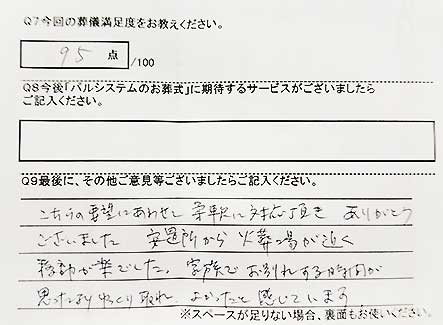 Q7今回の葬儀満足度をお教えください。
95 点 /100
Q8今後「パルシステムのお葬式」に期待するサービスがございましたら
ご記入ください。
Q9最後に、その他ご意見等ございましたらご記入ください。
こちらの要望にあわせ 柔軟に対応頂き ありがとう
ございました 安置所から火葬場が近く
移動が楽でした。家族でお別れする時間が
思ったよりゆっくり取れ よかったと感じています
※スペースが足りない場合、裏面もお使いください。